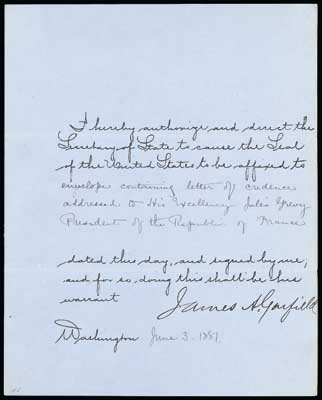 I hereby authorize and direct the
Secretary of State to cause the Seal
of the United States to be affixed to
envelope containing letter of credence
addressed to His Excellency Jules Grevy
President of the Republic of France
dated this day, and signed by me;
and for so doing this shall be his
warrant
James A. Garfield
Washington June 3. 1881.